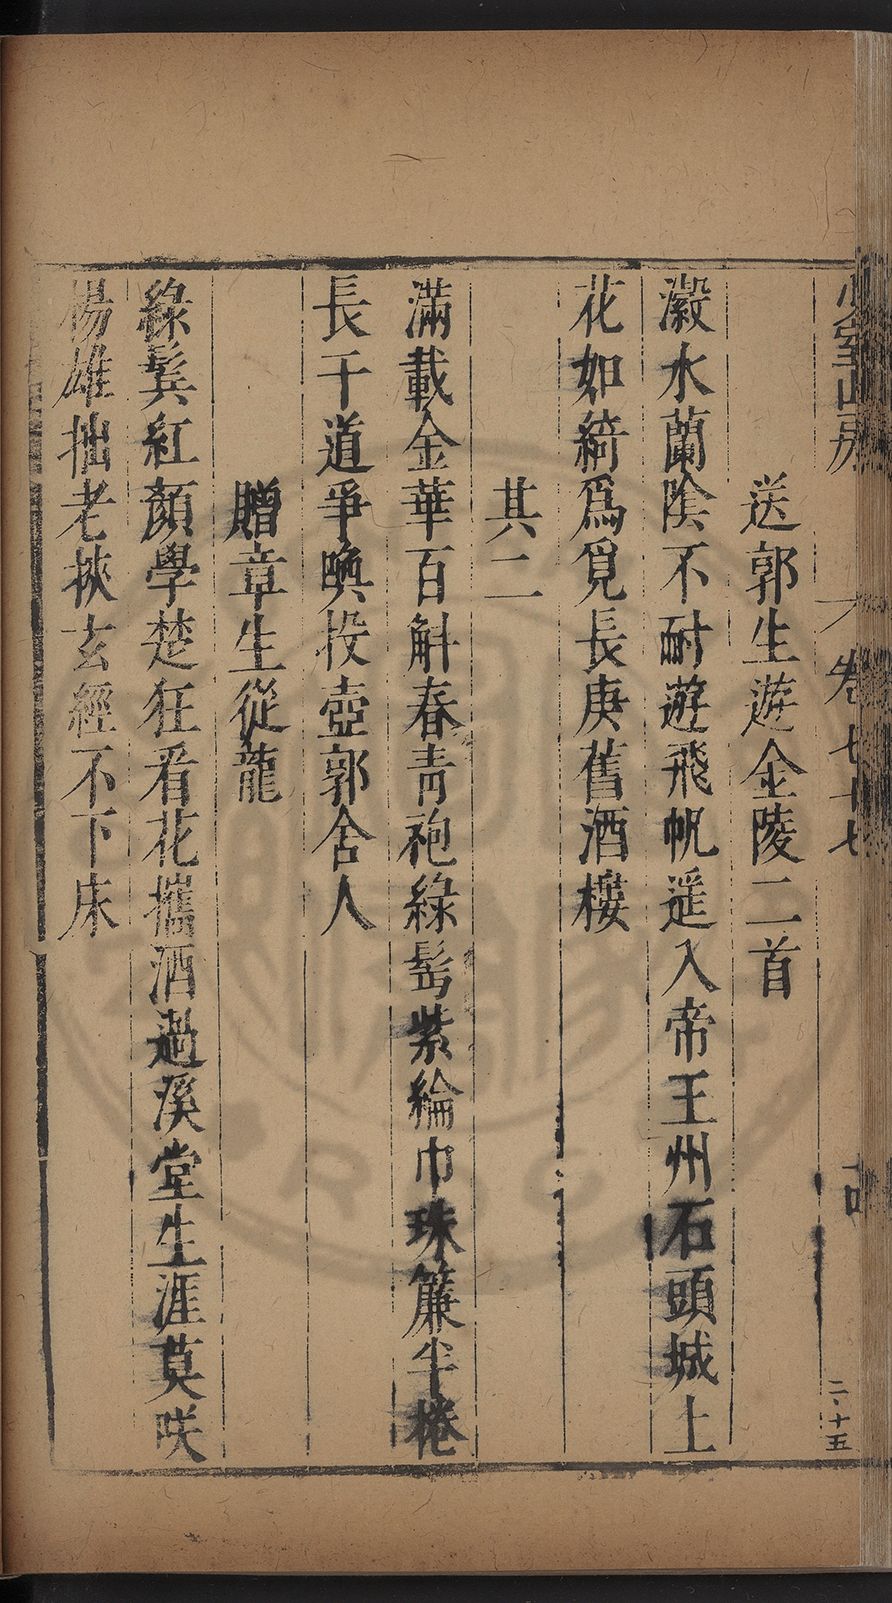 少室山房
卷七十七
二・十五
送郭生遊金陵二首
瀫水蘭陰不耐遊飛帆遥入帝王州石頭城上
花如綺爲覓長庚舊酒樓
其二
滿載金華百斛春青袍綠髩紫綸巾珠簾半捲
長干道爭喚投壺郭舍人
贈章生從龍
綠鬂紅顏學楚狂看花攜酒過溪堂生涯莫咲
楊雄拙老挾玄經不下床